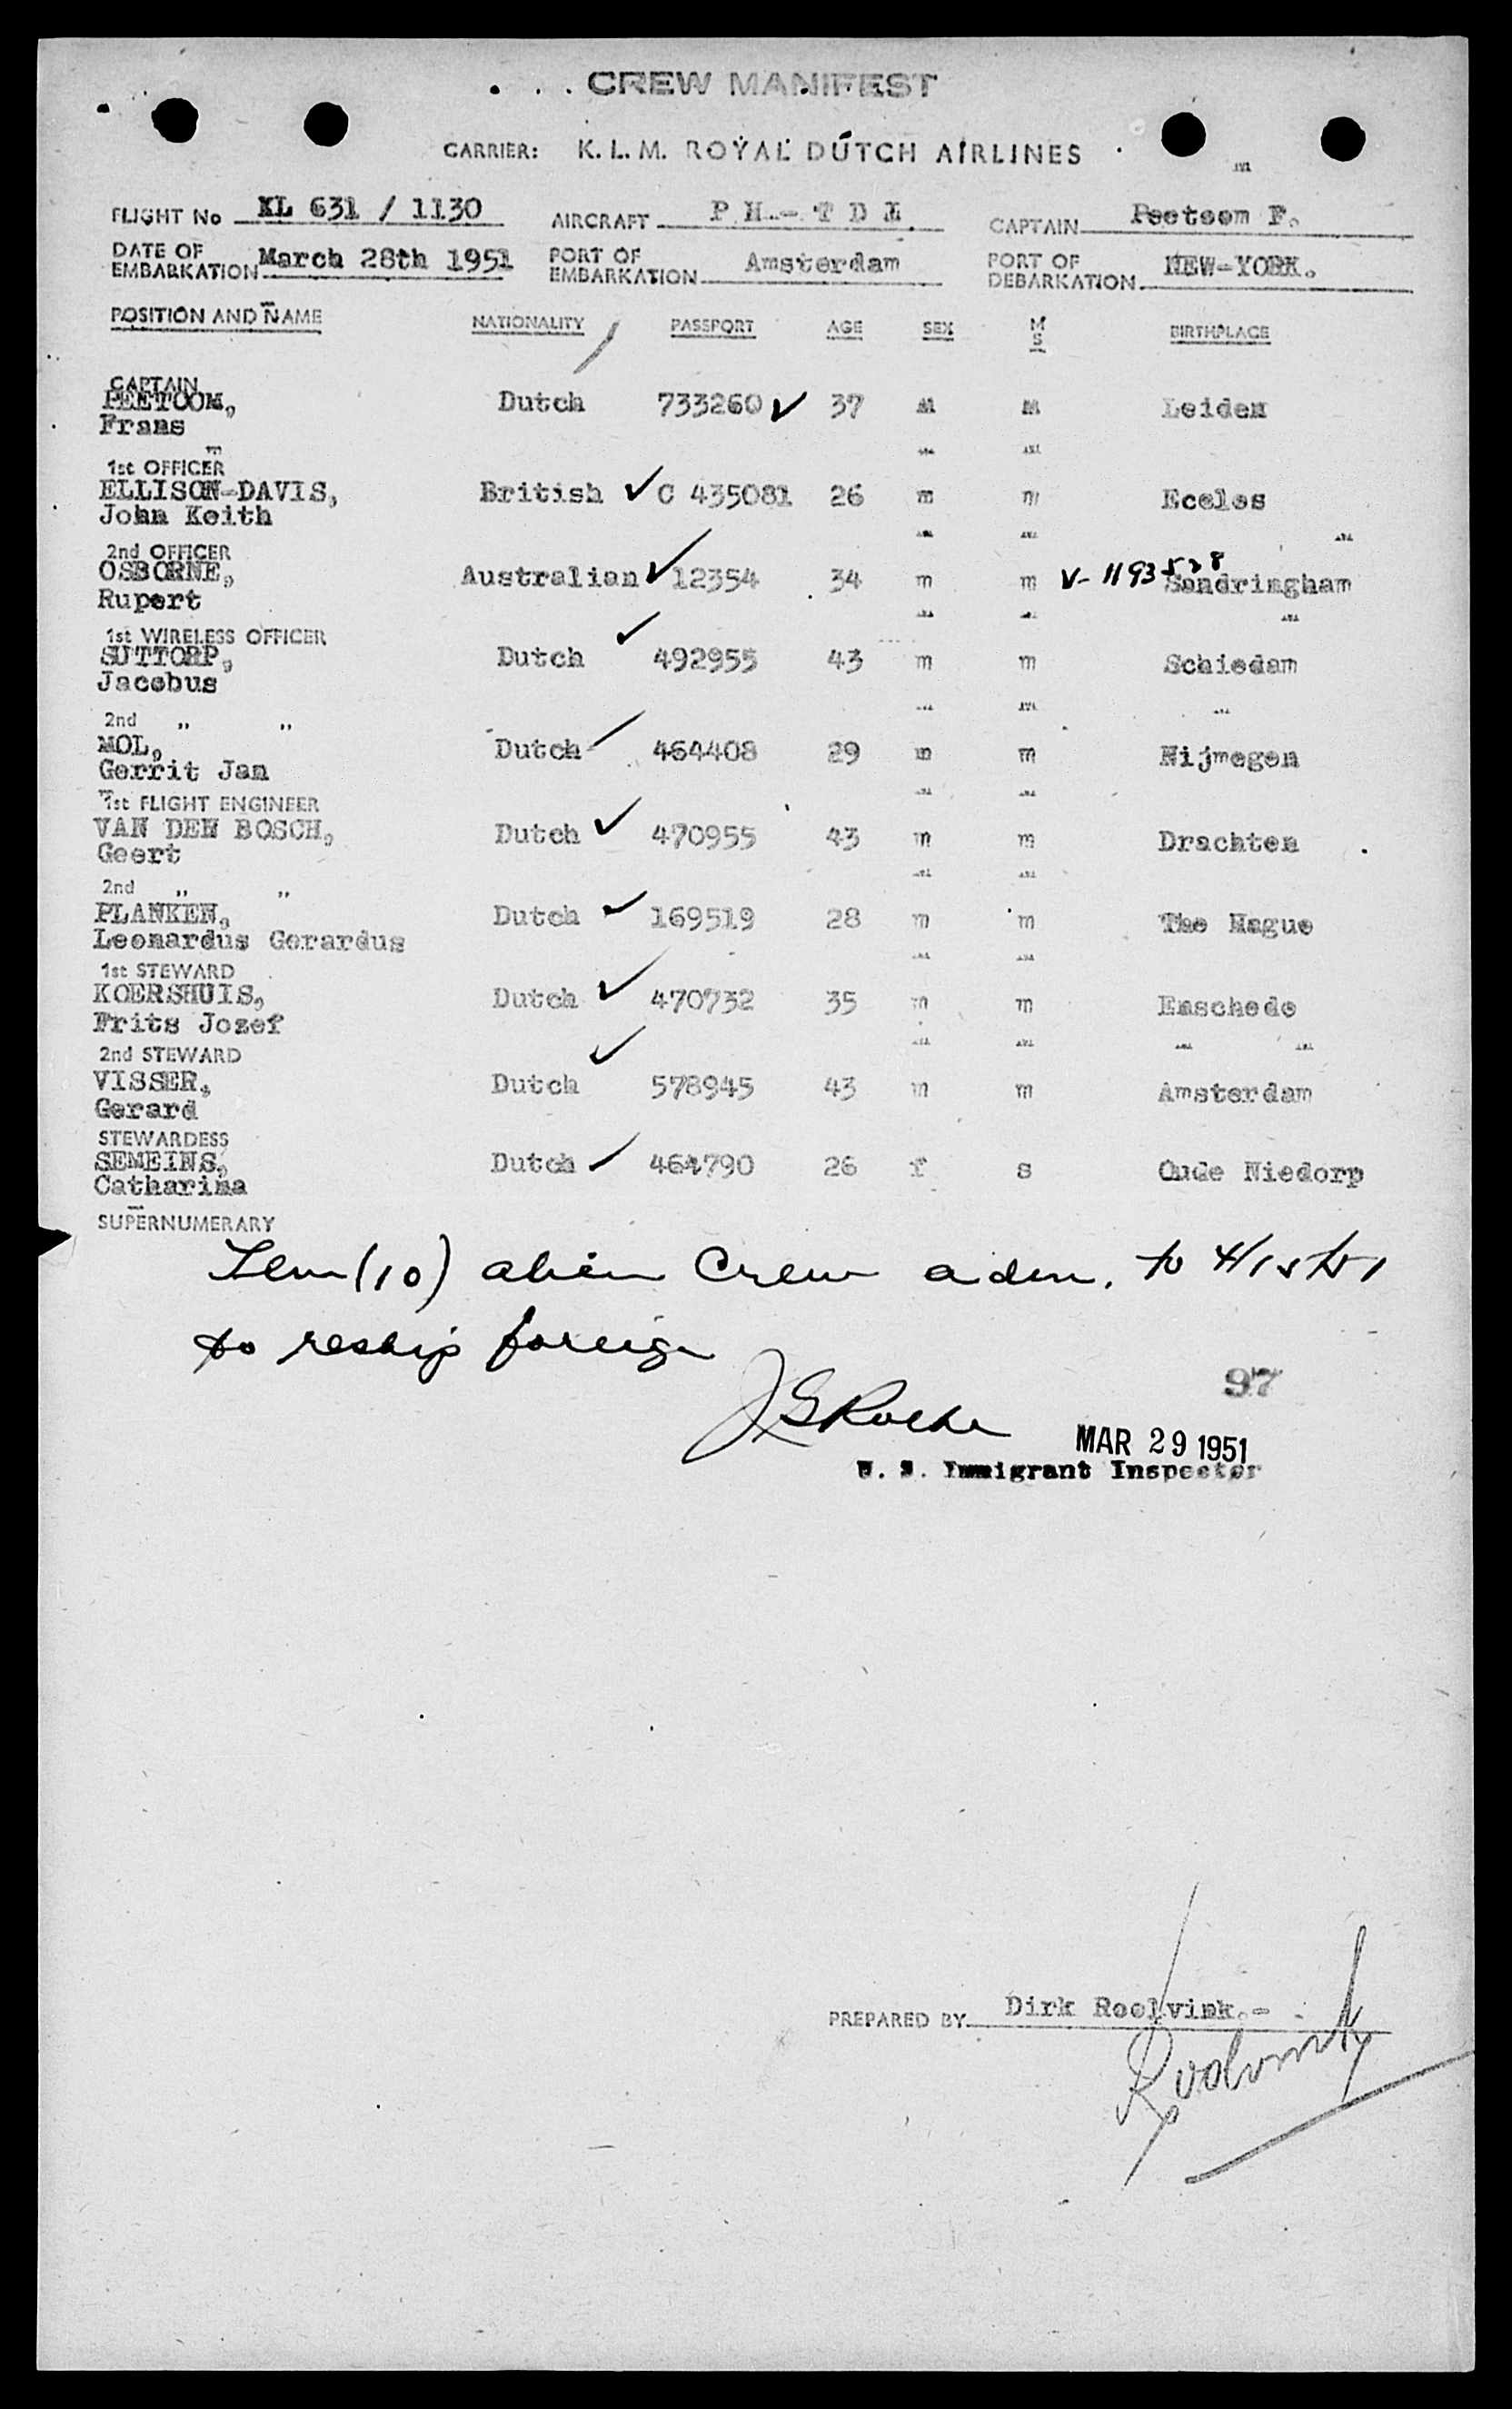 CREW MANIFEST
CARRIER: K. L. M. ROYAL DUTCH AIRLINES
FLIGHT No KL 631 / 1130 AIRCRAFT P H - T D L CAPTAIN Peetoom F.
DATE OF EMBARKATION March 28th 1951 PORT OF EMBARKATION Amsterdam PORT OF DEBARKATION NEW-YORK.
POSITION AND NAME NATIONALITY PASSPORT AGE SEX M S BIRTHPLACE
CAPTAIN
PEETOOM, Dutch 733260 37 m m Leiden
Frans
1st OFFICER
ELLISON-DAVIS, British C 435081 26 m m Eccles
John Keith
2nd OFFICER
OSBORNE, Australian 12354 34 m m V-1193528 Sandringham
Rupert
1st WIRELESS OFFICER
SUTTORP, Dutch 492955 43 m m Schiedam
Jacobus
2nd " "
MOL, Dutch 464408 29 m m Nijmegen
Gerrit Jan
1st FLIGHT ENGINEER
VAN DEN BOSCH, Dutch 470955 43 m m Drachten
Geert
2nd " "
PLANKEN, Dutch 169519 28 m m The Hague
Leonardus Gerardus
1st STEWARD
KOERSHUIS, Dutch 470732 35 m m Enschede
Frits Jozef
2nd STEWARD
VISSER, Dutch 578945 43 m m Amsterdam
Gerard
STEWARDESS
SEMEINS, Dutch 464790 26 f s Oude Niedorp
Catharina
SUPERNUMERARY
Ten (10) alien Crew adm. to
to reship foreign
97
MAR 29 1951
U. S. Immigrant Inspector
PREPARED BY Dirk Roelvink.-